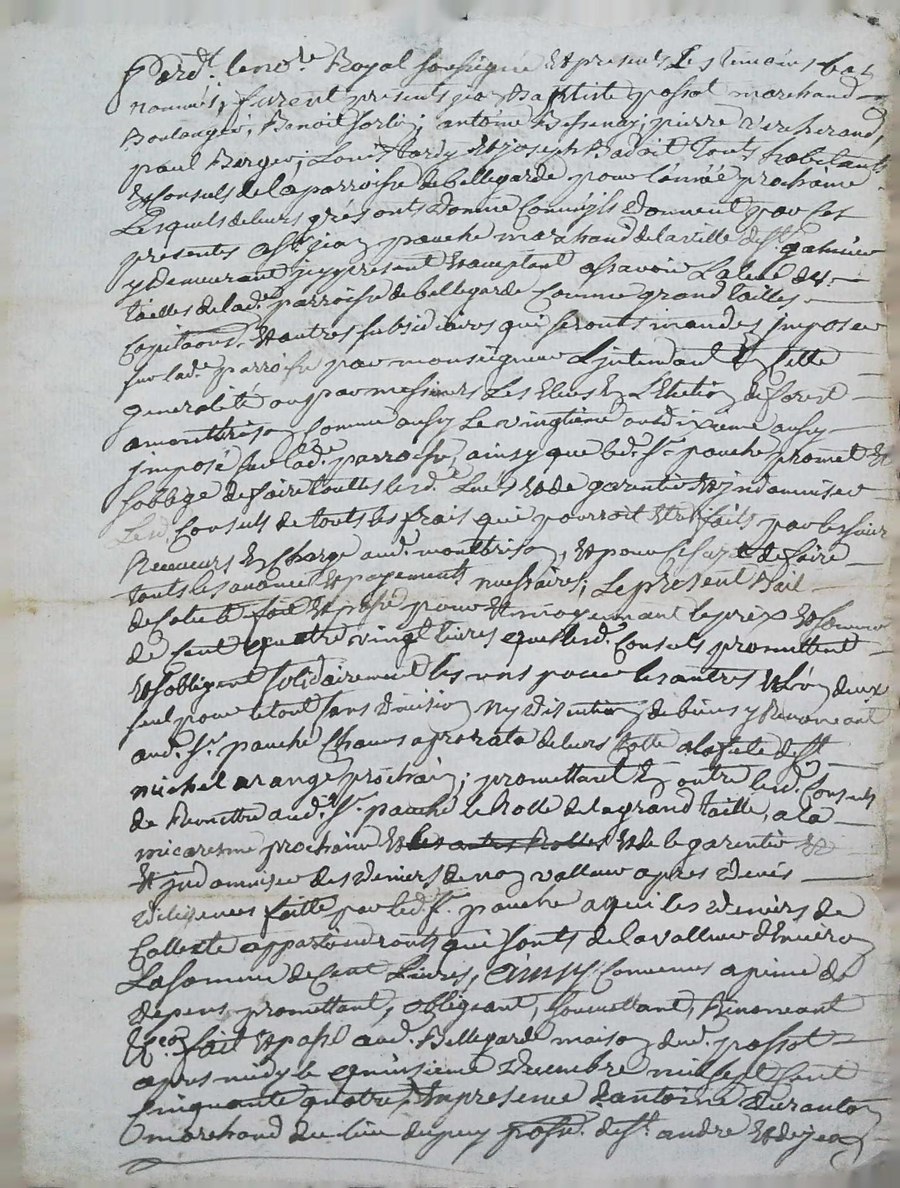 Pard.t le no.re Royal soussigné Et presents Les temoins bas
nommés, furent presents jean Baptiste possot marchand
Boulanger, Benoit forti; antoine Bessenay; pierre vercherand,
paul Berger; Louis tardy Et joseph Badoit touts habitants
Et Consuls de la parroisse de bellegarde pour l'année prochaine
Lesquels de leurs grés onts donné Comm'ils donnent par Ces
presentes a S.r jean pauche marchand de la ville de S.t galmier
y demeurant jcy present Et acceptant assavoir La levé des
tailles de la d.e parroisse de bellegarde Comme grand tailles
Capitaons Et autres subsidiaires qui seronts mandes jmposer
sur lad.e parroisse par monseigneur L'jntendant En Cette
generalité ou par messieurs Les Elus En L'Election de forest
a montbrison Comme aussy Le vingtième ou dixieme aussy
jmposé sur lad.e parroisse, ainsy que led. S.r pauche promet Et
s'obblige de faire touttes lesd. Levés Et de garentir Et jndamniser
Lesd. Consuls de touts les frais qui pourroit Etre faits par les sieurs
Receveurs En Charge aud. montbrison, Et pour Ce sujet de faire
touts les avances Et payements nessaires; Le present Bail
de fait Et passé pour Et moyennant le prix Et somme
de Cent quatre vingt livres que lesd. Consuls promettent
Et s'obbligent solidairement les uns pour les autres Et L'un d'eux
seul pour le tout sans division ny discution de biens y Renonceant
aud. S.r pauche Chacuns a prorata de leurs Cotte a la fete de S.t
michel arange prochain; promettant En outre lesd. Consuls
de Remettre aud. S.r pauche le Rolle de la grand taille, a la
micaresme prochaine Et les autres Rolles Et de le garentir Et
Et jndamniser des deniers de non valleur apres deües
diligences faitte par led. S.r pauche a qui les deniers de
Collecte appartiendronts qui sonts de la valleur d'Environ
La somme de Cent Livres, ainsy Convenus a peine de
depens promettant, obligeant, soumettant, Renonceant
fait Et passé aud. Bellegarde maison dud. possot
apres midy le quinsieme Decembre mil sept Cent
Cinquante quatre, En presence d'antoine duranton
marchand du lieu dupuy parr.e de S.t andré Et de jean